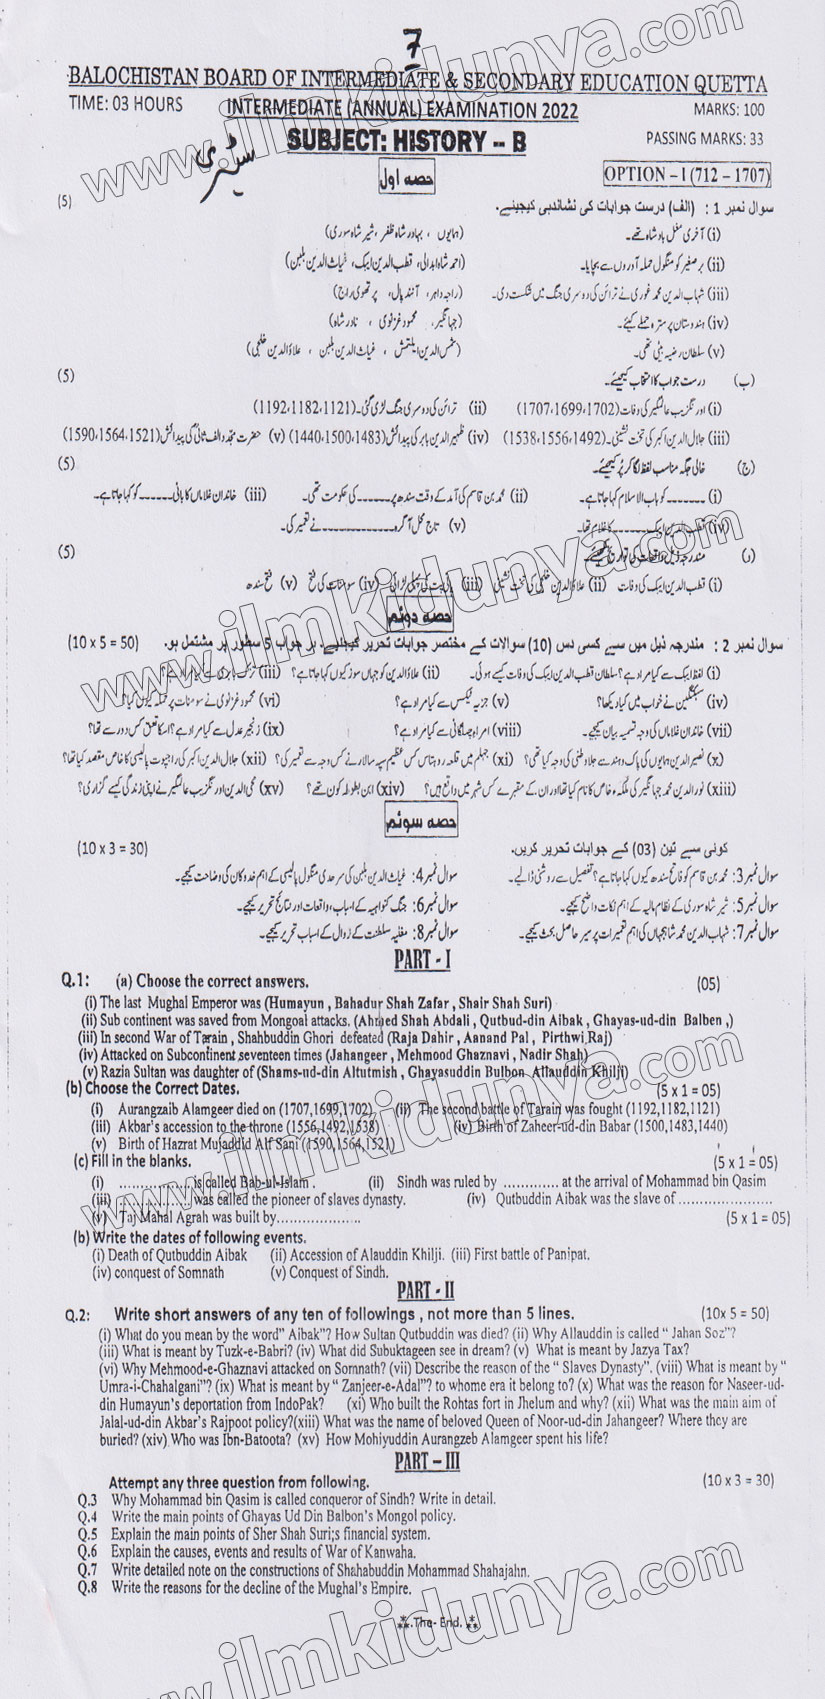 7
BALOCHISTAN BOARD OF INTERMEDIATE & SECONDARY EDUCATION QUETTA
TIME: 03 HOURS INTERMEDIATE (ANNUAL) EXAMINATION 2022 MARKS: 100
SUBJECT: HISTORY -- B PASSING MARKS: 33
حصہ اول OPTION – I (712 - 1707)
سوال نمبر 1 : (الف) درست جوابات کی نشاندہی کیجیئے۔ (5)
(i) آخری مغل بادشاہ تھے۔ (ہمایوں ، بہادر شاہ ظفر، شیر شاہ سوری)
(ii) برصغیر کو منگول حملہ آوروں سے بچایا۔ (احمد شاہ ابدالی، قطب الدین ایبک، غیاث الدین بلبن)
(iii) شہاب الدین محمد غوری نے ترائن کی دوسری جنگ میں شکست دی۔ (راجہ داہر ، آنند پال، پرتھوی راج)
(iv) ہندوستان پر سترہ حملے کیئے۔ (جہانگیر، محمود غزنوی ، نادر شاہ)
(v) سلطان رضیہ بیٹی تھی۔ (شمس الدین ایلتمش ، غیاث الدین بلبن ، علاؤالدین خلجی)
(ب) درست جواب کا انتخاب کیجیئے۔ (5)
(i) اورنگزیب عالمگیر کی وفات (1707،1699،1702) (ii) ترائن کی دوسری جنگ لڑی گئی۔ (1192،1182،1121)
(iii) جلال الدین اکبر کی تخت نشینی۔ (1538،1556،1492) (iv) ظہیر الدین بابر کی پیدائش (1440،1500،1483) (v) حضرت مجدد الف ثانیؒ کی پیدائش (1590،1564،1521)
(ج) خالی جگہ مناسب لفظ لگا کر پُر کیجیئے۔ (5)
(i) ــــــــ کو باب الاسلام کہا جاتا ہے۔ (ii) محمد بن قاسم کی آمد کے وقت سندھ پر ــــــ کی حکومت تھی۔ (iii) خاندان غلاماں کا بانی ــــــ کو کہا جاتا ہے۔
(iv) قطب الدین ایبک ــــــ کا غلام تھا۔ (v) تاج محل آگرہ ــــــــ نے تعمیر کی۔
(د) مندرجہ ذیل واقعات کی تواریخ لکھیئے۔ (5)
(i) قطب الدین ایبک کی وفات (ii) علاؤالدین خلجی کی تخت نشینی (iii) پانی پت کی پہلی لڑائی (iv) سومنات کی فتح (v) فتح سندھ
حصہ دوئم
سوال نمبر 2 : مندرجہ ذیل میں سے کسی دس (10) سوالات کے مختصر جوابات تحریر کیجیئے۔ ہر جواب 5 سطور پر مشتمل ہو۔ (10 x 5 = 50)
(i) لفظ ایبک سے کیا مراد ہے؟ سلطان قطب الدین ایبک کی وفات کیسے ہوئی۔ (ii) علاؤالدین کو جہاں سوز کیوں کہا جاتا ہے؟ (iii) تزک بابری سے کیا مراد ہے؟
(iv) سبکتگین نے خواب میں کیا دیکھا؟ (v) جزیہ ٹیکس سے کیا مراد ہے؟ (vi) محمود غزنوی نے سومنات پر حملہ کیوں کیا؟
(vii) خاندان غلاماں کی وجہ تسمیہ بیان کیجیے۔ (viii) امراء چہلگانی سے کیا مراد ہے؟ (ix) زنجیر عدل سے کیا مراد ہے؟ اسکا تعلق کس دور سے تھا؟
(x) نصیر الدین ہمایوں کی پاک و ہند سے جلاوطنی کی وجہ کیا تھی؟ (xi) جہلم میں قلعہ روہتاس کس عظیم سپہ سالار نے کس وجہ سے تعمیر کی؟ (xii) جلال الدین اکبر کی راجپوت پالیسی کا خاص مقصد کیا تھا؟
(xiii) نور الدین محمد جہانگیر کی ملکہ خاص کا نام کیا تھا اور ان کے مقبرے کس شہر میں واقع ہیں؟ (xiv) ابن بطوطہ کون تھے؟ (xv) محی الدین اورنگزیب عالمگیر نے اپنی زندگی کیسے گزاری؟
حصہ سوئم
کوئی سے تین (03) کے جوابات تحریر کریں۔ (10 x 3 = 30)
سوال نمبر 3: محمد بن قاسم کو فاتح سندھ کیوں کہا جاتا ہے؟ تفصیل سے روشنی ڈالیے۔ سوال نمبر 4: غیاث الدین بلبن کی سرحدی منگول پالیسی کے اہم خدوخال کی وضاحت کیجیے۔
سوال نمبر 5: شیر شاہ سوری کے نظام مالیہ کے اہم نکات واضح کیجیے۔ سوال نمبر 6: جنگ کنواہہ کے اسباب، واقعات اور نتائج تحریر کیجیے۔
سوال نمبر 7: شہاب الدین محمد شاہجہاں کی اہم تعمیرات پر سیر حاصل بحث کیجیے۔ سوال نمبر 8: مغلیہ سلطنت کے زوال کے اسباب تحریر کیجیے۔
PART - I
Q.1: (a) Choose the correct answers. (05)
(i) The last Mughal Emperor was (Humayun , Bahadur Shah Zafar , Shair Shah Suri)
(ii) Sub continent was saved from Mongoal attacks. (Ahmed Shah Abdali , Qutbud-din Aibak , Ghayas-ud-din Balben ,)
(iii) In second War of Tarain , Shahbuddin Ghori defeated (Raja Dahir , Aanand Pal , Pirthwi Raj)
(iv) Attacked on Subcontinent seventeen times (Jahangeer , Mehmood Ghaznavi , Nadir Shah)
(v) Razia Sultan was daughter of (Shams-ud-din Altutmish , Ghayasuddin Bulbon, Allauddin Khilji)
(b) Choose the Correct Dates. (5 x 1 = 05)
(i) Aurangzaib Alamgeer died on (1707,1699,1702) (ii) The second battle of Tarain was fought (1192,1182,1121)
(iii) Akbar's accession to the throne (1556,1492,1538) (iv) Birth of Zaheer-ud-din Babar (1500,1483,1440)
(v) Birth of Hazrat Mujaddid Alf Sani (1590,1564,1521)
(c) Fill in the blanks. (5 x 1 = 05)
(i) .................. is called Bab-ul-Islam . (ii) Sindh was ruled by ............. at the arrival of Mohammad bin Qasim
(iii) .................. was called the pioneer of slaves dynasty. (iv) Qutbuddin Aibak was the slave of ......................
(v) Taj Mahal Agrah was built by.................... (5 x 1 = 05)
(b) Write the dates of following events.
(i) Death of Qutbuddin Aibak (ii) Accession of Alauddin Khilji. (iii) First battle of Panipat.
(iv) conquest of Somnath (v) Conquest of Sindh.
PART - II
Q.2: Write short answers of any ten of followings , not more than 5 lines. (10x 5 = 50)
(i) What do you mean by the word" Aibak"? How Sultan Qutbuddin was died? (ii) Why Allauddin is called " Jahan Soz"?
(iii) What is meant by Tuzk-e-Babri? (iv) What did Subuktageen see in dream? (v) What is meant by Jazya Tax?
(vi) Why Mehmood-e-Ghaznavi attacked on Somnath? (vii) Describe the reason of the " Slaves Dynasty". (viii) What is meant by "
Umra-i-Chahalgani"? (ix) What is meant by " Zanjeer-e-Adal"? to whome era it belong to? (x) What was the reason for Naseer-ud-
din Humayun's deportation from IndoPak? (xi) Who built the Rohtas fort in Jhelum and why? (xii) What was the main aim of
Jalal-ud-din Akbar's Rajpoot policy?(xiii) What was the name of beloved Queen of Noor-ud-din Jahangeer? Where they are
buried? (xiv) Who was Ibn-Batoota? (xv) How Mohiyuddin Aurangzeb Alamgeer spent his life?
PART – III
Attempt any three question from following. (10 x 3 = 30)
Q.3 Why Mohammad bin Qasim is called conqueror of Sindh? Write in detail.
Q.4 Write the main points of Ghayas Ud Din Balbon's Mongol policy.
Q.5 Explain the main points of Sher Shah Suri;s financial system.
Q.6 Explain the causes, events and results of War of Kanwaha.
Q.7 Write detailed note on the constructions of Shahabuddin Mohammad Shahajahn.
Q.8 Write the reasons for the decline of the Mughal's Empire.
The- End.
www.ilmkidunya.com
www.ilmkidunya.com
www.ilmkidunya.com
www.ilmkidunya.com